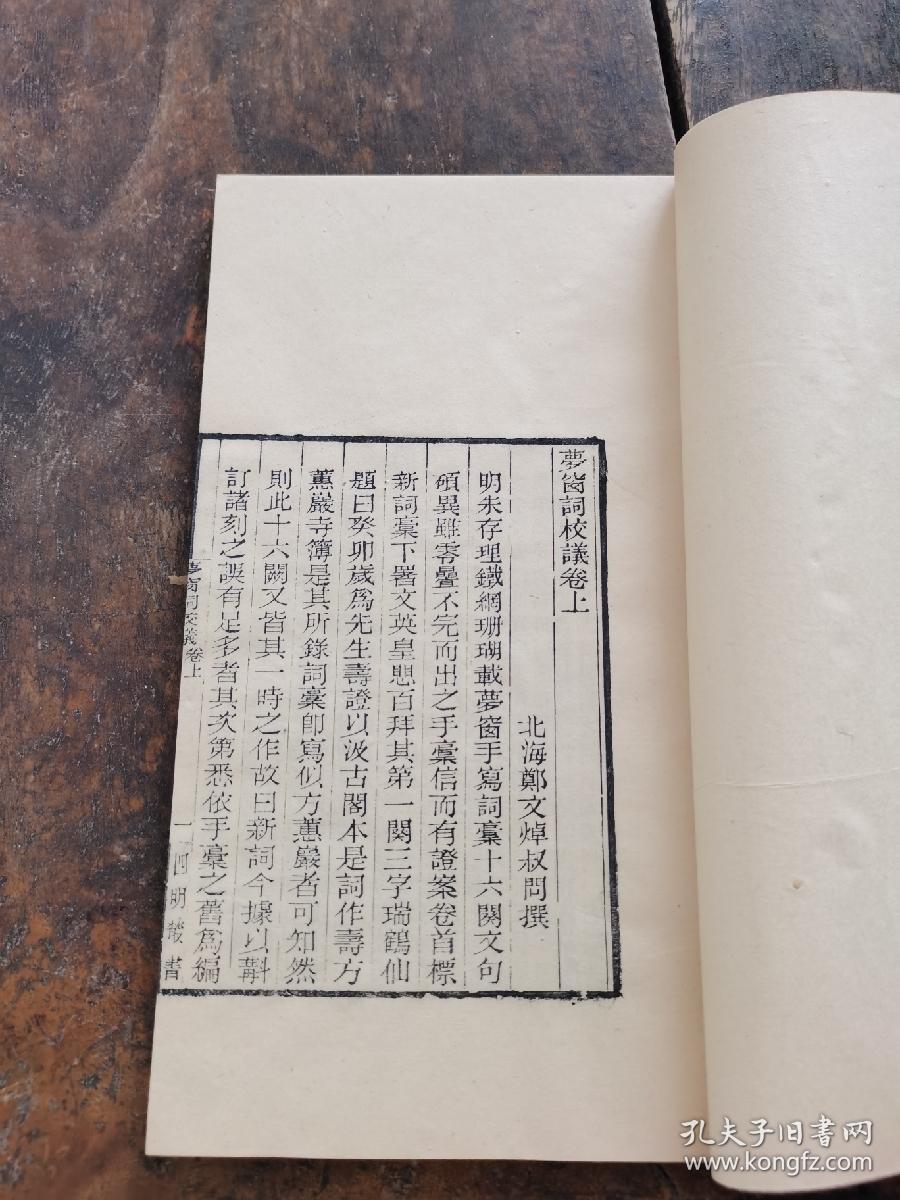 夢窗詞校議卷上
北海鄭文焯叔問撰
明朱存理鐵網珊瑚載夢窗手寫詞稾十六闋文句
碩異雖零疊不完而出之手稾信而有證案卷首標
新詞稾下署文英皇恐百拜其第一闋三字瑞鶴仙
題曰癸卯歲爲先生壽證以汲古閣本是詞作壽方
蕙巖寺簿是其所錄詞稾卽寫似方蕙巖者可知然
則此十六闋又皆其一時之作故曰新詞今據以斠
訂諸刻之誤有足多者其次第悉依手稾之舊爲編
夢窗詞校議卷上
一
四明叢書
孔夫子旧书网
www.kongfz.com